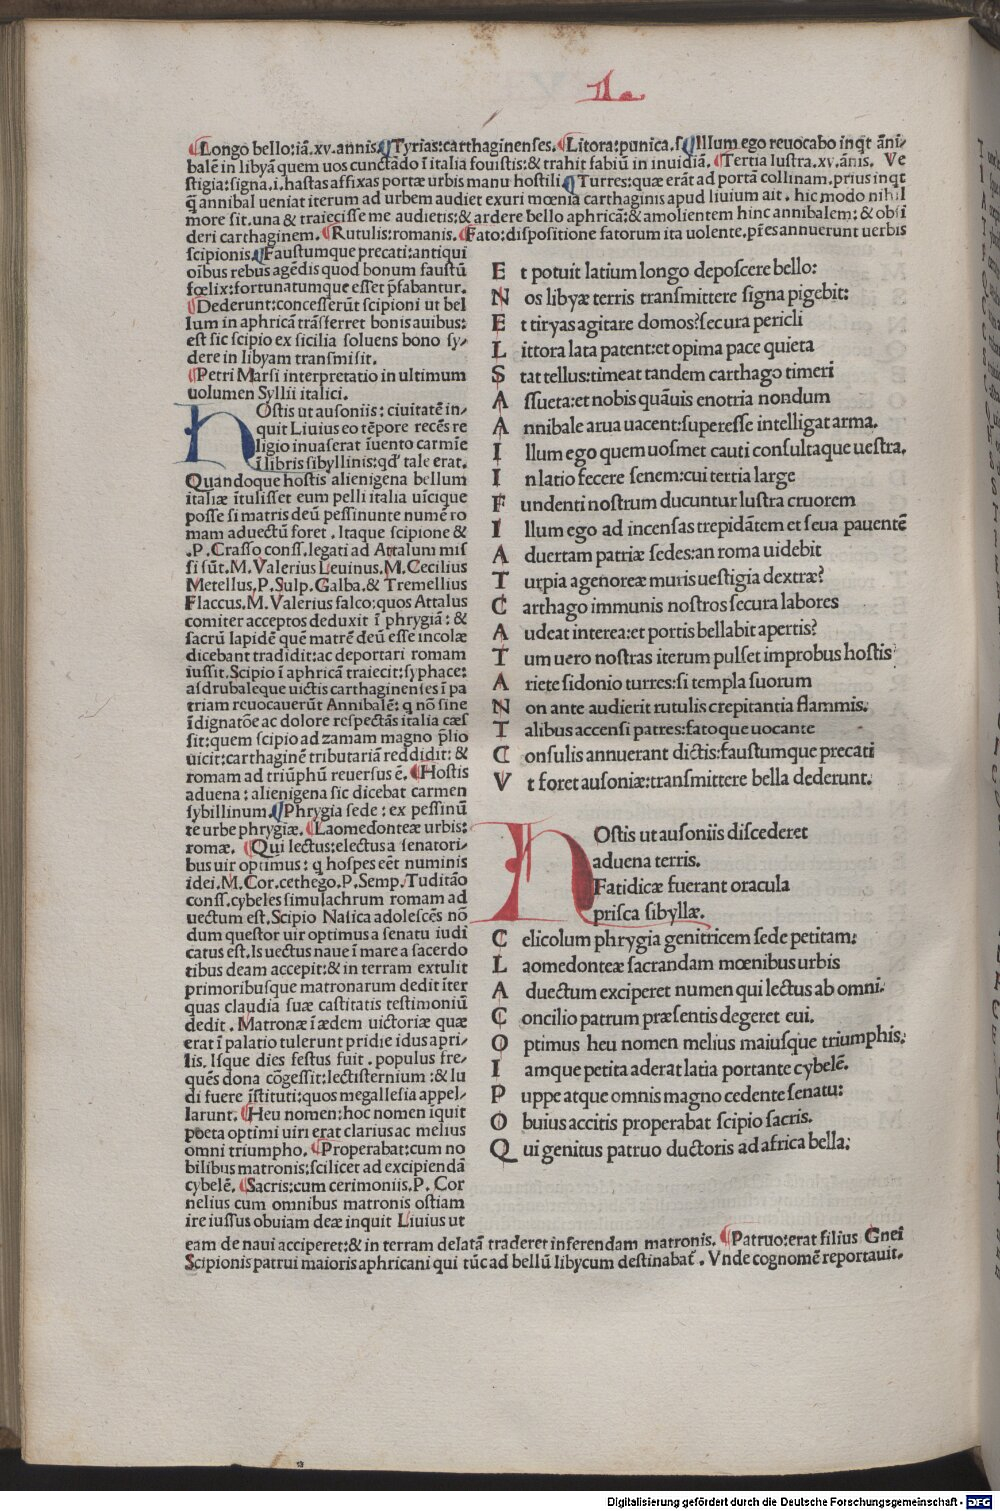 Longo bello:iā.xv.annis. Tyrias:carthaginenses. Litora:punica.s Illum ego reuocabo inqt āni/
balē in libyā quem uos cunctādo ī italia fouistis:& trahit fabiū in inuidiā. Tertia lustra.xv.ānis. Ve
stigia:signa.i.hastas affixas portæ urbis manu hostili Turres:quæ erāt ad portā collinam.prius inqt
q̄ annibal ueniat iterum ad urbem audiet exuri mœnia carthaginis apud liuium ait. hic modo nihil
more sit.una & traiecisse me audietis:& ardere bello aphricā:& amolientem hinc annibalem: & obsi
deri carthaginem. Rutulis:romanis. Fato:dispositione fatorum ita uolente.pr̄es annuerunt uerbis
scipionis. Faustumque precati:antiqui
oībus rebus agēdis quod bonum faustū
fœlix:fortunatumque esset p̄fabantur.
Dederunt:concesserūt scipioni ut bel
lum in aphricā trāsferret bonis auibus:
est sic scipio ex sicilia soluens bono sy/
dere in libyam transmisit.
Petri Marsi interpretatio in ultimum
uolumen Syllii italici.
Hostis ut ausoniis: ciuitatē in/
quit Liuius eo tēpore recēs re
ligio inuaserat īuento carmīe
ī libris sibyllinis:qd' tale erat.
Quandoque hostis alienigena bellum
italiæ ītulisset eum pelli italia uīcique
posse si matris deū pessinunte numē ro
mam aduectū foret. Itaque scipione &
.P. Crasso conss. legati ad Attalum mis
si sūt. M. Valerius Leuinus. M. Cecilius
Metellus. P. Sulp. Galba. & Tremellius
Flaccus. M. Valerius falco:quos Attalus
comiter acceptos deduxit ī phrygiā: &
sacrū lapidē quē matrē deū esse incolæ
dicebant tradidit:ac deportari romam
iussit. Scipio ī aphricā traiecit:syphace:
asdrubaleque uictis carthaginenses ī pa
triam reuocauerūt Annibalē: q nō sine
īdignatōe ac dolore respectās italiā cæs
sit:quem scipio ad zamam magno p̄lio
uicit:carthaginē tributariā reddidit: &
romam ad triūphū reuersus ē. Hostis
aduena: alienigena sic dicebat carmen
sybillinum. Phrygia sede: ex pessinū
te urbe phrygiæ. Laomedonteæ urbis:
romæ. Qui lectus:electus a senatori/
bus uir optimus: q hospes eēt numinis
idei. M. Cor. cethego. P. Semp. Tuditāo
conss. cybeles simulachrum romam ad
uectum est. Scipio Nasica adolescēs nō
dum questor uir optimus a senatu iudi
catus est. Is uectus naue ī mare a sacerdo
tibus deam accepit:& in terram extulit
primoribusque matronarum dedit īter
quas claudia suæ castitatis testimoniū
dedit. Matronæ ī ædem uictoriæ quæ
erat ī palatio tulerunt pridie idus apri/
lis. Isque dies festus fuit. populus fre/
quēs dona cōgessit:lectisternium:& lu
di fuere īstituti:quos megallesia appel/
larunt. Heu nomen:hoc nomen īquit
poeta optimi uiri erat clarius ac melius
omni triumpho. Properabat:cum no
bilibus matronis:scilicet ad excipiendā
cybelē. Sacris:cum cerimoniis. P. Cor
nelius cum omnibus matronis ostiam
ire iussus obuiam deæ inquit Liuius ut
eam de naui acciperet:& in terram delatā traderet inferendam matronis. Patruo:erat filius Gnei
Scipionis patrui maioris aphricani qui tūc ad bellū libycum destinabat̄. Vnde cognomē reportauit.
Et potuit latium longo deposcere bello:
Nos libyæ terris transmittere signa pigebit:
Et tiryas agitare domos?secura pericli
Littora lata patent:et opima pace quieta
Stat tellus:timeat tandem carthago timeri
Assueta:et nobis quāuis enotria nondum
Annibale arua uacent:superesse intelligat arma.
Illum ego quem uosmet cauti consultaque uestra.
In latio fecere senem:cui tertia large
Fundenti nostrum ducuntur lustra cruorem
Illum ego ad incensas trepidātem et seua pauentē
Aduertam patriæ sedes:an roma uidebit
Turpia agenoreæ muris uestigia dextræ?
Carthago immunis nostros secura labores
Audeat interea:et portis bellabit apertis?
Tum uero nostras iterum pulset improbus hostis
Ariete sidonio turres:si templa suorum
Non ante audierit rutulis crepitantia flammis.
Talibus accensi patres:fatoque uocante
Consulis annuerant dictis:faustumque precati
Vt foret ausoniæ:transmittere bella dederunt.
Hostis ut ausoniis discederet
aduena terris.
Fatidicæ fuerant oracula
prisca sibyllæ.
Celicolum phrygia genitricem sede petitam:
Laomedonteæ sacrandam mœnibus urbis
Aduectum exciperet numen qui lectus ab omni.
Concilio patrum præsentis degeret eui.
Optimus heu nomen melius maiusque triumphis.
Iamque petita aderat latia portante cybelē.
Puppe atque omnis magno cedente senatu:
Obuius accitis properabat scipio sacris.
Qui genitus patruo ductoris ad africa bella:
Digitalisierung gefördert durch die Deutsche Forschungsgemeinschaft - DFG